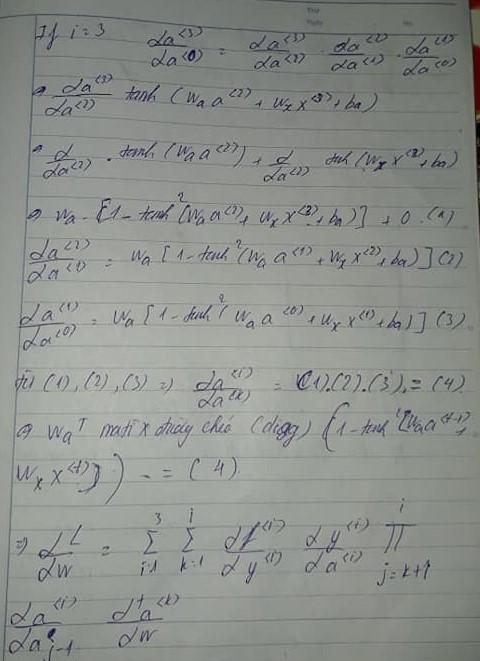 If i = 3 da<3>/da<0> = da<3>/da<2> . da<2>/da<1> . da<1>/da<0>
=> da<3>/da<2> tanh (wa a<2> + wx x<3> + ba)
=> d/da<2> . tanh (wa a<2>) + d/da<2> tanh (wx x<3> + ba)
=> wa . [1 - tanh² (wa a<2> + wx x<3> + ba)] + 0 . (1)
da<2>/da<1> = wa [1 - tanh² (wa a<1> + wx x<2> + ba)] (2)
da<1>/da<0> = wa [1 - tanh² (wa a<0> + wx x<1> + ba)] (3)
Từ (1), (2), (3) => da<i>/da<k> = (1).(2).(3). = (4)
=> waT matix đường chéo (diag) (1 - tanh² (wa a<t-1>,
wx x<t>)) = (4)
=> dL/dw = 3∑i=1 i∑k=1 dL<i>/dy<i> dy<i>/da<i> i∏j=k+1
da<i>/da j-1 d+a<k>/dw